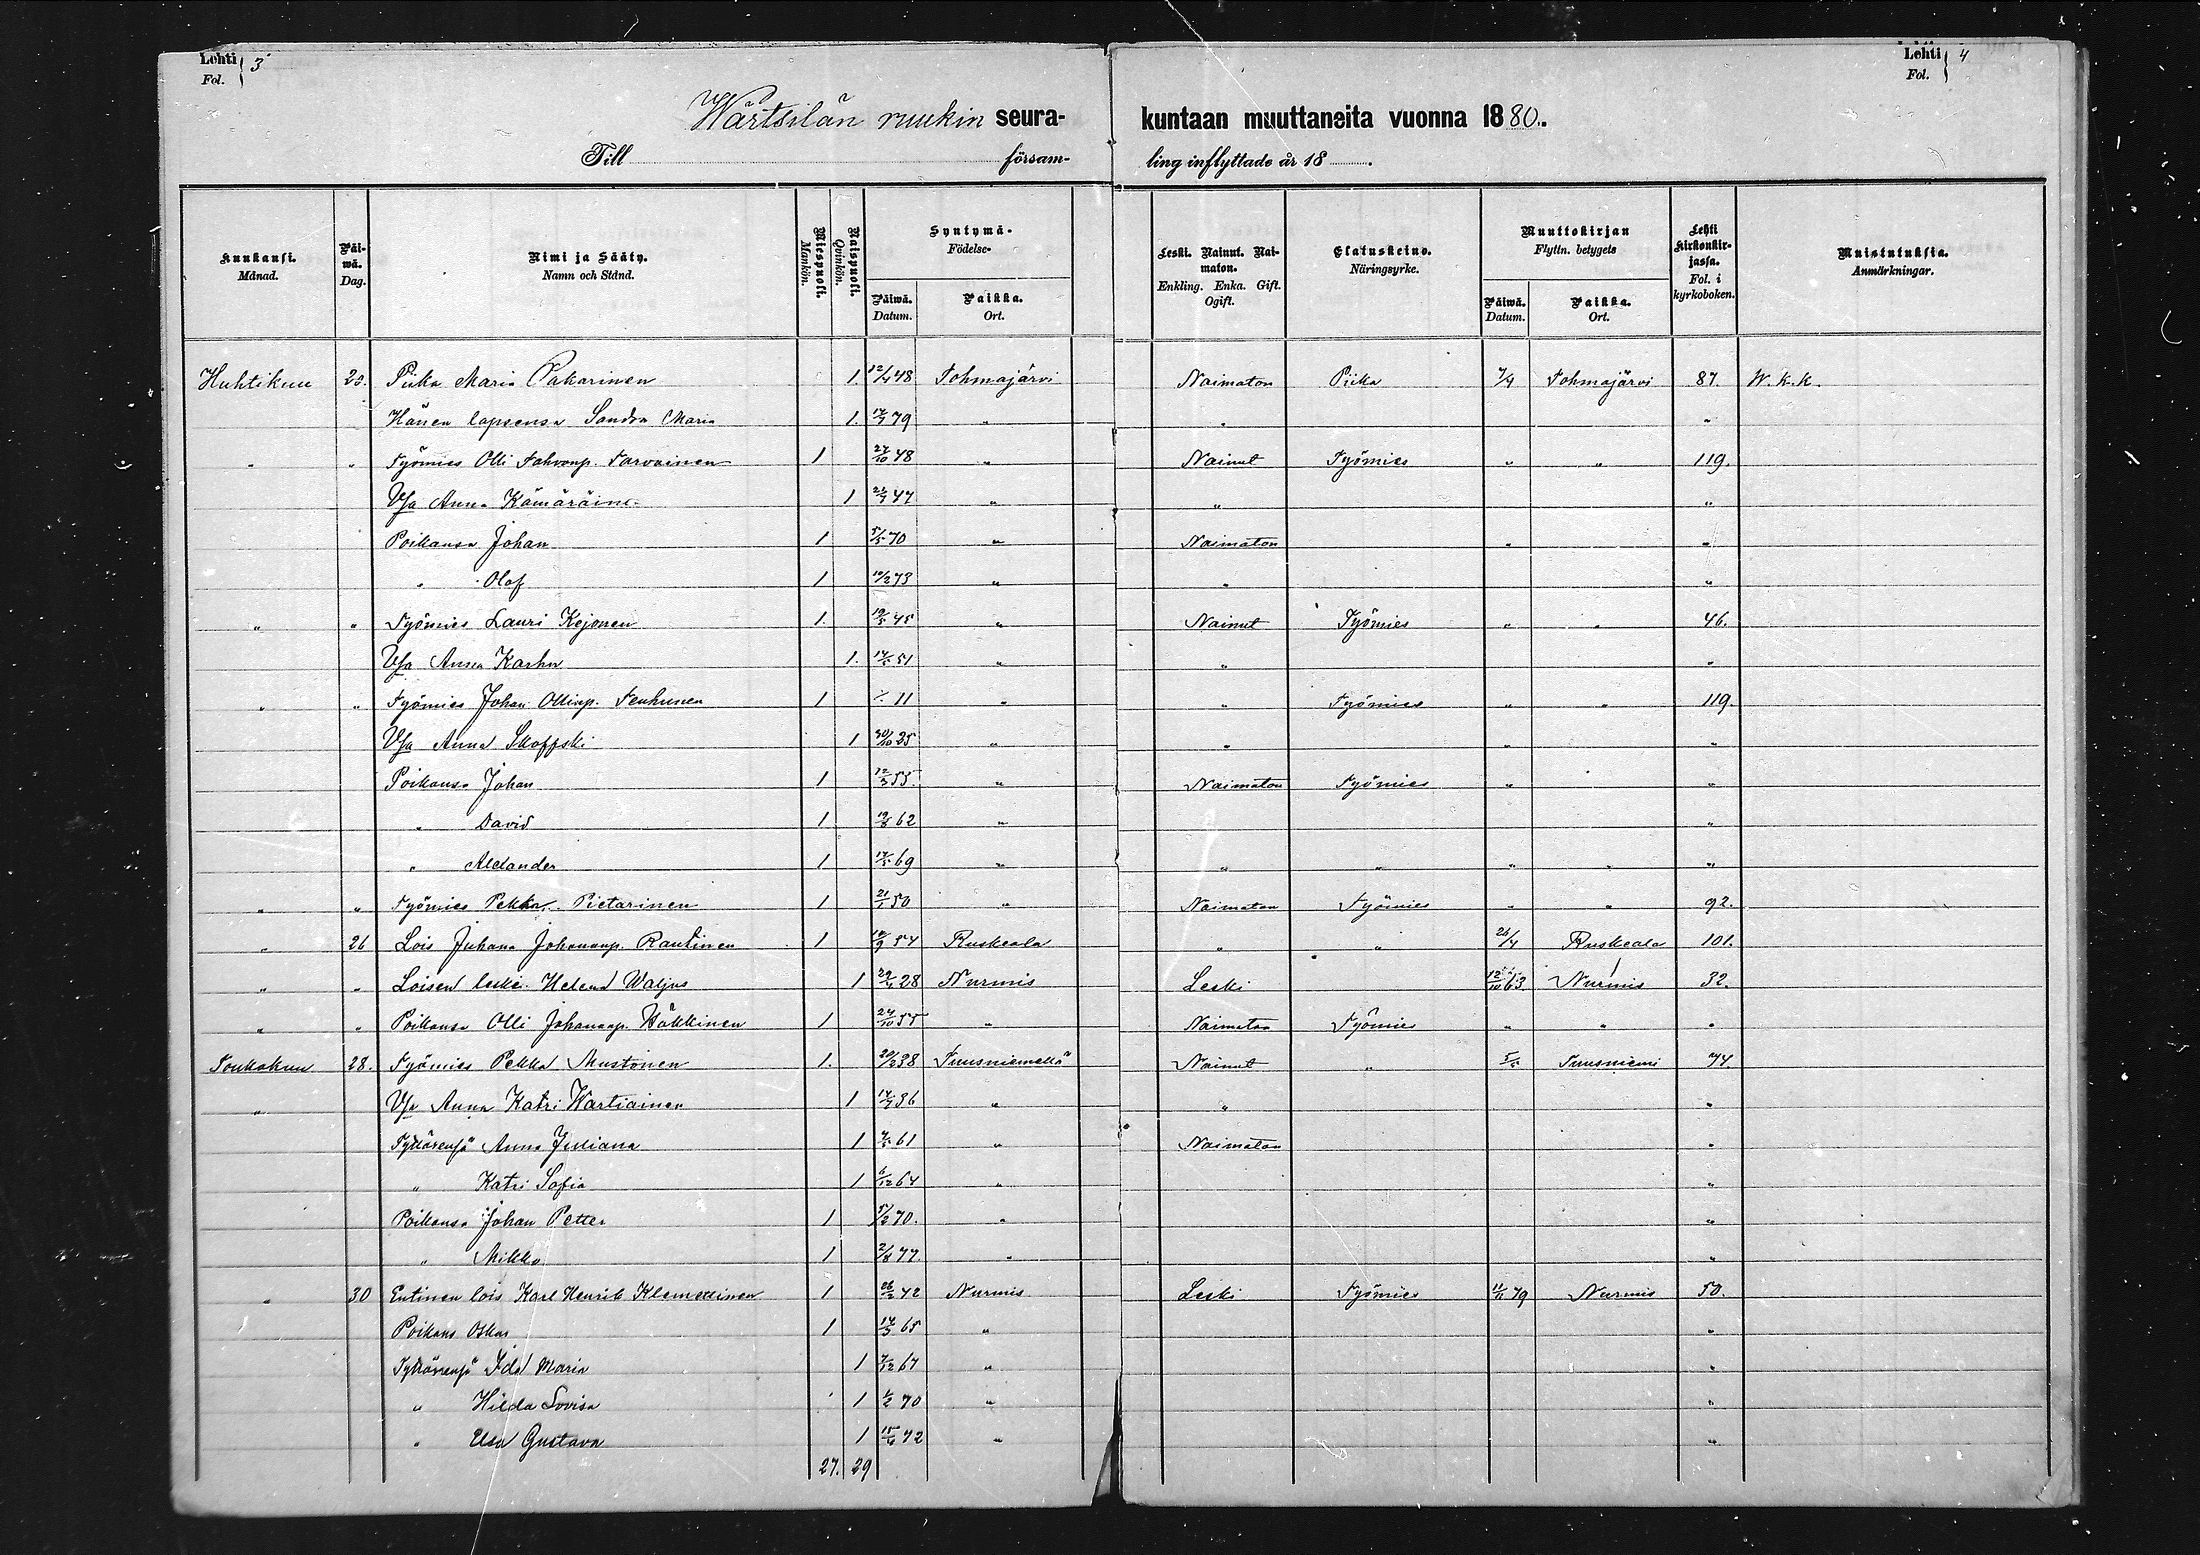 Lehti 3 Lehti 4
Fol. Fol.
Wärtsilän ruukin seura- kuntaan muuttaneita vuonna 1880.
Till försam- ling inflyttade år 18
Kuukausi. Månad. Päiwä. Dag. Nimi ja Sääty. Namn och Stånd. Miespuoli. Mankön. Naispuoli. Quinkön. Syntymä- Födelse- Päiwä. Datum. Paikka. Ort. Leski. Nainut. Naimaton. Enkling. Enka. Gift. Ogift. Elatuskeino. Näringsyrke. Muuttokirjan Flyttn. betygets Päiwä. Datum. Paikka. Ort. Lehti kirkonkirjassa. Fol. i kyrkoboken. Muistutuksia. Anmärkningar.
Huhtikuu 20. Piika Maria Pakarinen 1. 12/4 48 Tohmajärvi Naimaton Piika 7/4 Tohmajärvi 87. W. k. k.
Hänen lapsensa Sandra Maria 1. 79 " " "
" " Työmies Olli Tahvonp. Tarvainen 1 27/10 48 " Nainut Työmies " " 119.
Vsa Anna Kämäräine 1 47 " " "
Poikansa Johan 1 5/5 70 " Naimaton " "
" Olof 1 10/2 73 " " "
" " Työmies Lauri Kejonen 1. 45 " Nainut Työmies " " 46.
Vsa Anna Karhu 1. 51 " " "
" " Työmies Johan Ollinp. Tenhunen 1 11 " " Työmies " " 119.
Vsa Anna Skoffski 1 30/10 25 " " " "
Poikansa Johan 1 12/3 55. " Naimaton Työmies " " "
" David 1 62 " "
" Alexander 1 69 " " " " " "
" " Työmies Pekka Pietarinen 1 21/1 50 " Naimaton Työmies " " 92.
" 26 Lois Juhana Johananp. Rautinen 1 54 Ruskeala " " 26/4 Ruskeala 101.
" " Loisen leski Helena Waljus 1 28 Nurmis Leski 12/10 63. Nurmis 32.
" " Poikansa Olli Johananp. Häkkinen 1 24/10 55 " Naimaton Työmies " " "
Toukokuu 28. Työmies Pekka Mustonen 1. 20/2 38 Tuusniemellä Nainut " 5/5 Tuusniemi 74.
" Vsa Anna Katri Wartiainen 1 36 " " "
Tyttärensä Anna Juliana 1 61 " Naimaton "
" Katri Sofia 1 6/12 64 " "
Poikansa Johan Petter 1 5/2 70. " "
" Mikko 1 2/8 77. " "
" 30 Entinen lois Karl Henrik Klemettinen 1 26/2 42 Nurmis Leski Työmies 79 Nurmis 50.
Poikans Oskar 1 65 " "
Tyttärensä Ida Maria 1 7/12 67 " "
" Hilda Lovisa 1 1/2 70 " "
" Elsa Gustava 1 72 " "
27. 29